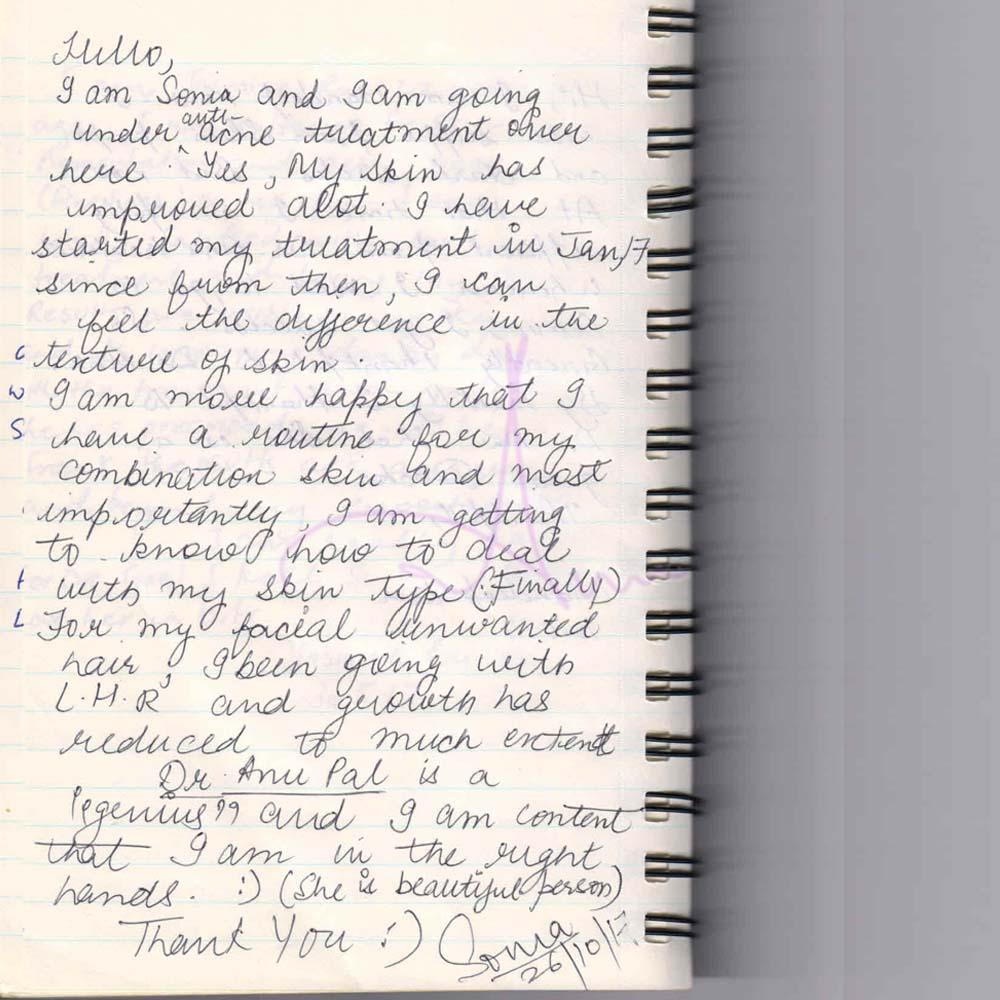 Hello,
I am Sonia and I am going
under anti-acne treatment over
here. Yes, My skin has
improved alot. I have
started my treatment in Jan/17
since from then, I can
feel the difference in the
texture of skin.
I am more happy that I
have a routine for my
combination skin and most
importantly, I am getting
to know how to deal
with my skin type (Finally)
For my facial unwanted
hair, I been going with
L.H.R and growth has
reduced to much extent
Dr. Anu Pal is a
"genius" and I am content
that I am in the right
hands. :) (She is beautiful person)
Thank You :) Sonia
26/10/17